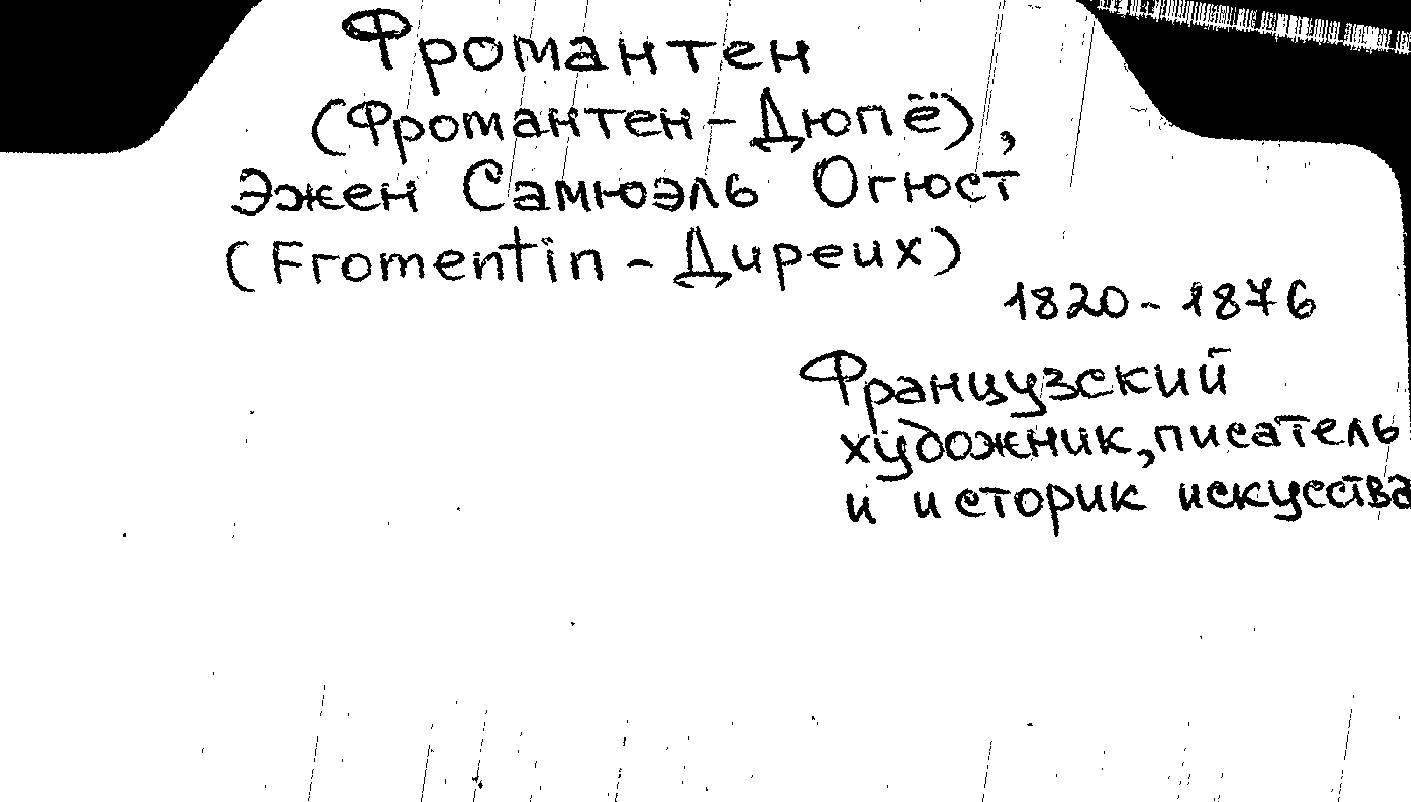 Фромантен
(Фромантен-Дюпё),
Эжен Самюэль Огюст
(Fromentin - Диреих)
1820-1876
Французский
художник, писатель
и историк искусства